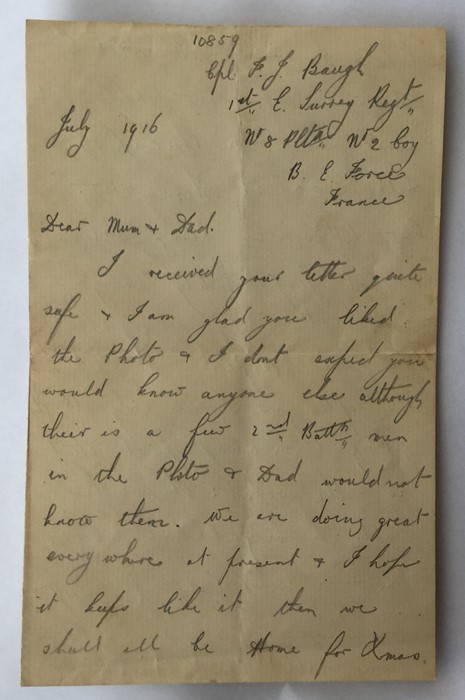 10859
Cpl F. J. Baugh
1st E. Surrey Regt
July 1916
No 8 Pltn No 2 Coy
B. E. Force
France
Dear Mum & Dad.
I received your letter quite
safe & I am glad you liked
the Photo & I dont expect you
would know anyone else although
their is a few 2nd Battn men
in the Photo & Dad would not
know them. We are doing great
everywhere at present & I hope
it keeps like it then we
shall all be Home for Xmas.